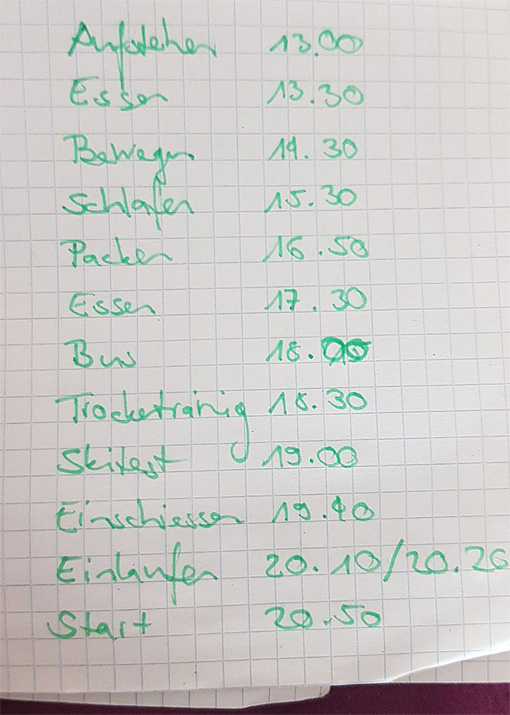 Aufstehen 13.00
Essen 13.30
Bewegen 14.30
Schlafen 15.30
Packen 16.50
Essen 17.30
Bus 18.00
Trocketräinig 18.30
Skitest 19.00
Einschiessen 19.40
Einlaufen 20.10/20.20
Start 20.50